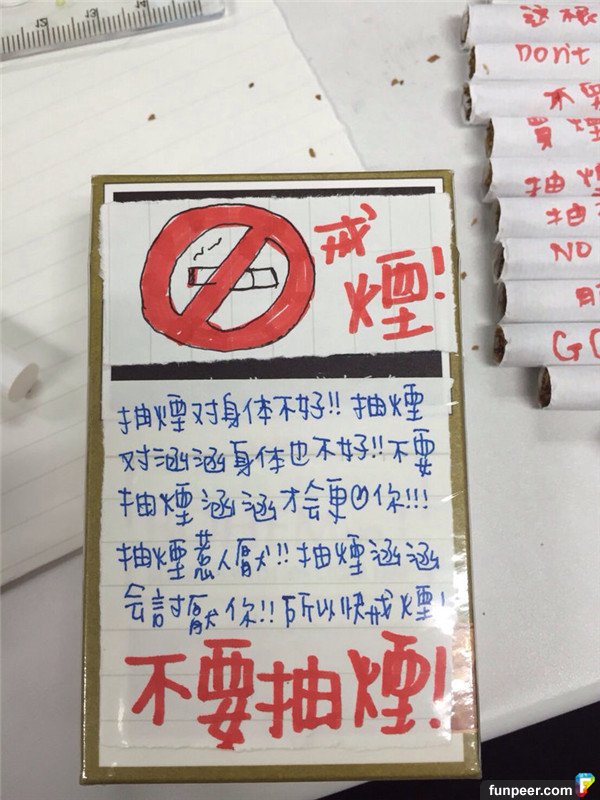 這根
Don't
不要
買煙
抽煙
抽
NO
戒
煙!
抽煙对身体不好!! 抽煙
对涵涵身体也不好!! 不要
抽煙涵涵才会更♡你!!!
抽煙惹人厭!! 抽煙涵涵
会討厭你!! 所以快戒煙!
不要抽煙!
funpeer.com